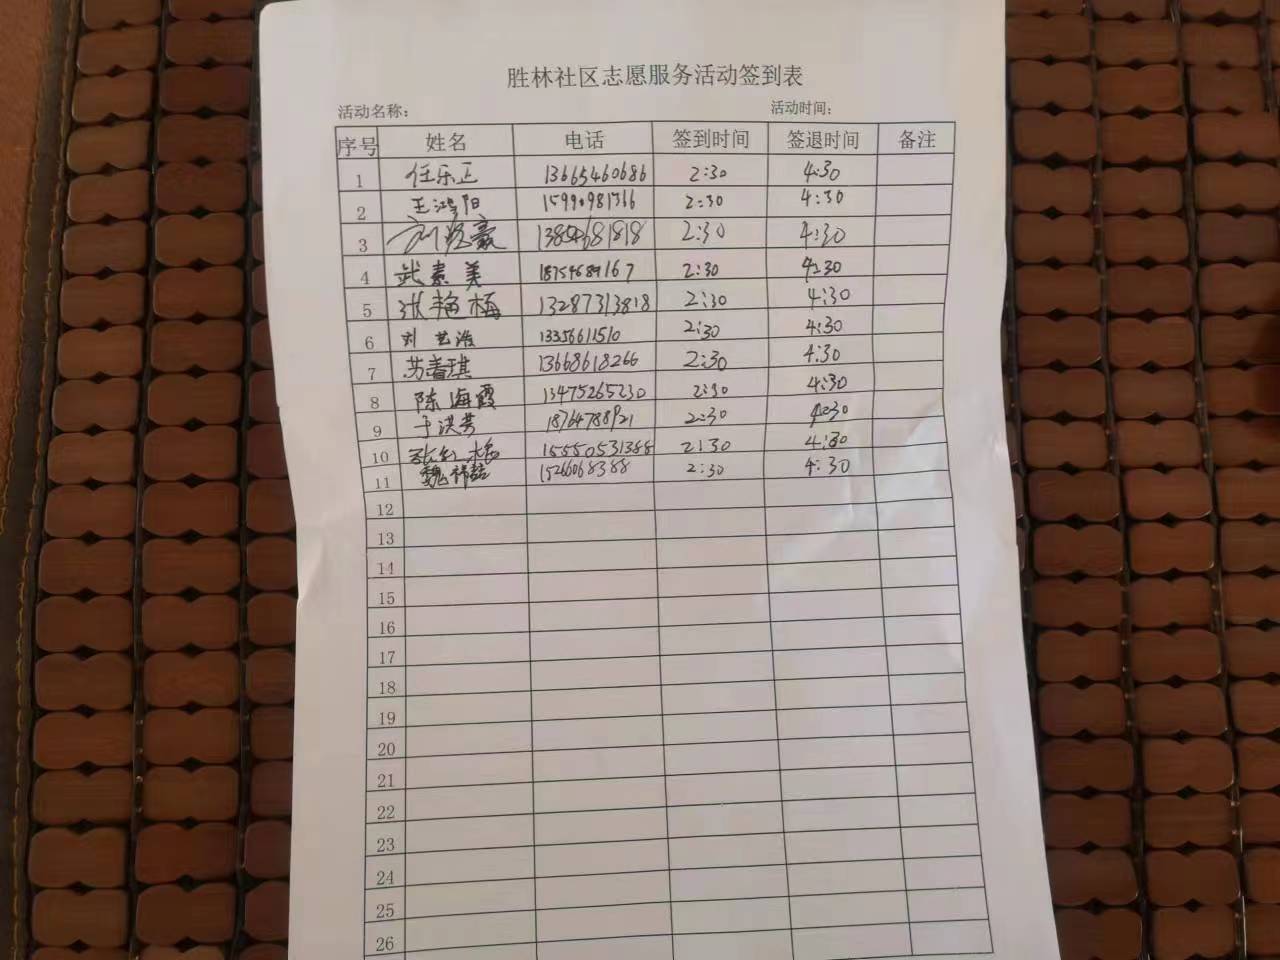 胜林社区志愿服务活动签到表
活动名称： 活动时间：
序号 姓名 电话 签到时间 签退时间 备注
1 任乐正 13665460686 2:30 4:30
2 王鸿阳 15990981366 2:30 4:30
3 2:30 4:30
4 武素美 18754689167 2:30 4:30
5 张艳梅 13287313818 2:30 4:30
6 刘艺浩 13356611510 2:30 4:30
7 苏春琪 13668618266 2:30 4:30
8 陈海霞 13475265230 2:30 4:30
9 于洪芳 18764788921 2:30 4:30
10 15550531388 2:30 4:30
11 魏 15266068388 2:30 4:30
12
13
14
15
16
17
18
19
20
21
22
23
24
25
26